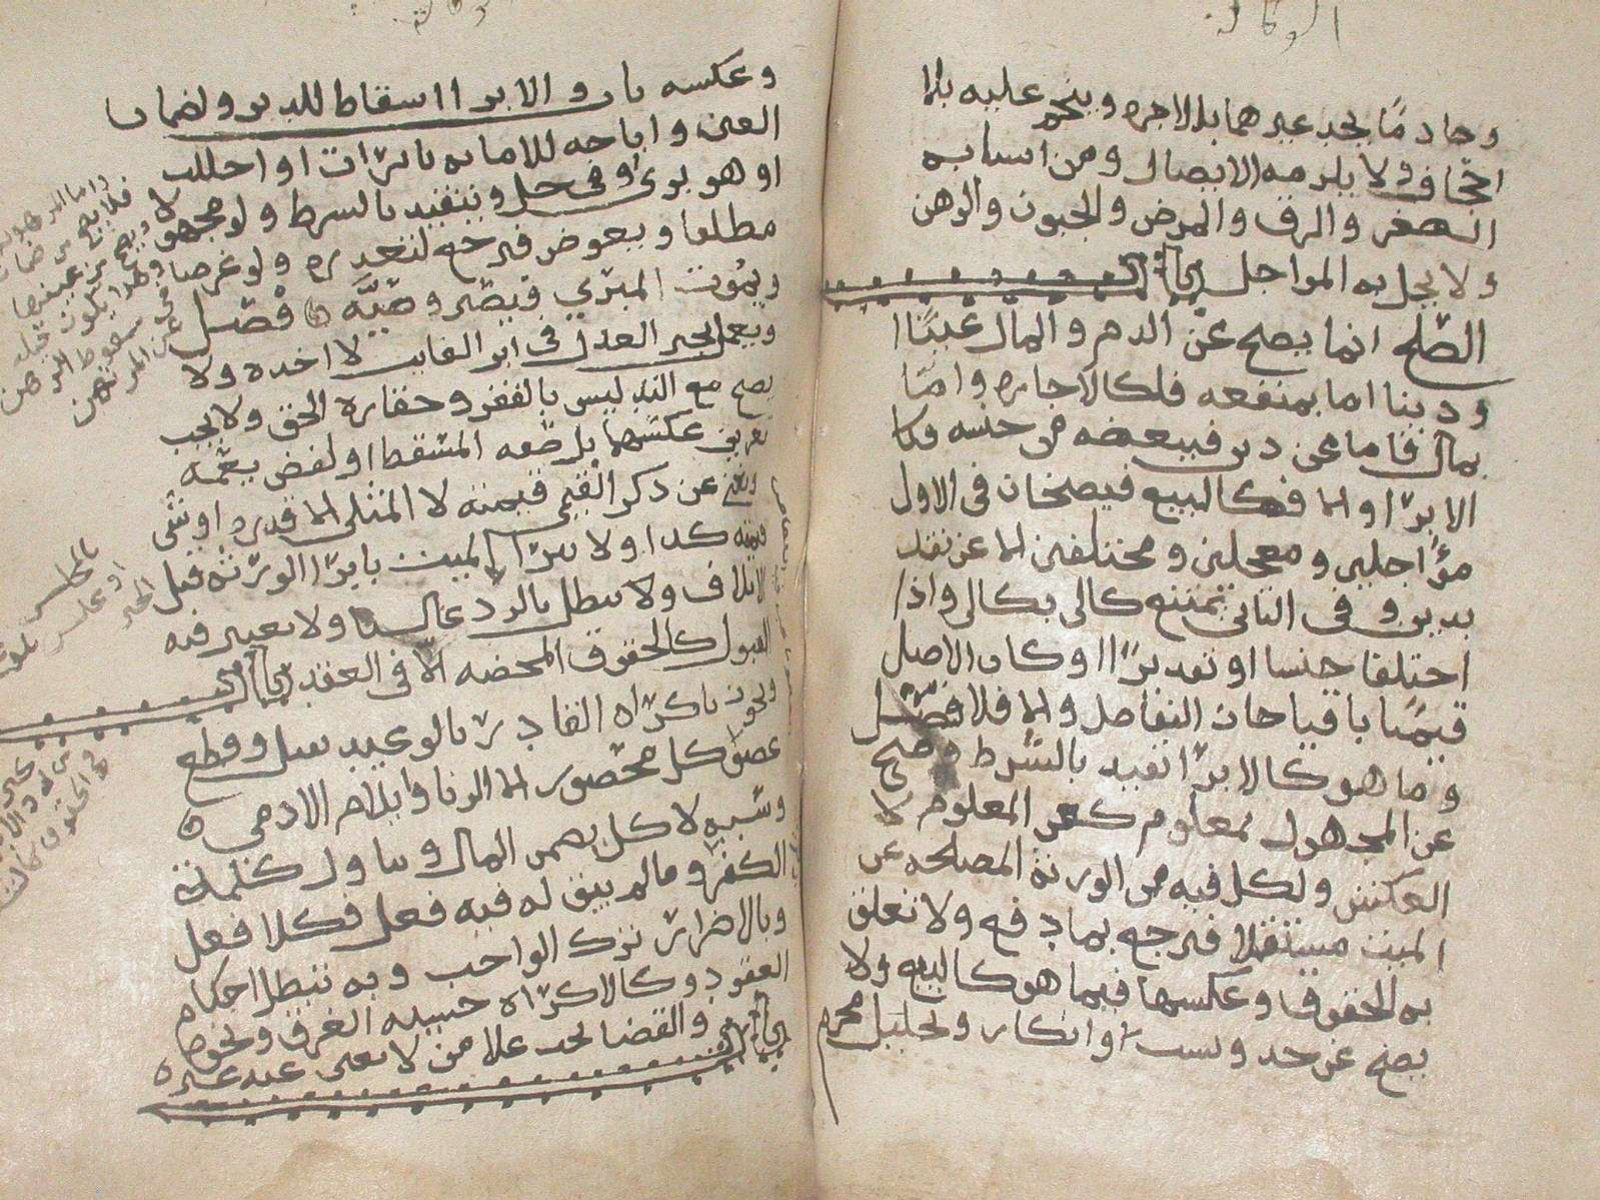 وخاد مًا يجد غيرهما بلا اجره وينحم عليه بلا
اخحاف ولا يلزمه الايصال ومن اسبابه
الصغر والرق والمرض والجنون والرهن
ولا يحل به المواجل كتاب
الصلح انما يصح عن الدم والمال عينًا
ودينا اما بمنفعه فكالاجاره واما
بمال فاما عن دين فببعضه من جنسه فكا
الابرا والا فكالبيع فيصحان في الاول
مؤاجلين ومعجلين ومختلفين الا عن نقد
بدين وفي الثاني يمتنع كالى بكالى واذا
اختلفا جنسا او تقديرًا او كان الاصل
قيميًا باقيا جاز التفاضل والا فلا فصل
وما هو كالابرا يقيد بالشرط وصح
عن المجهول بمعلوم كعن المعلوم لا
العكس ولكل فيه من الورثة المصالحه عن
الميت مستقلا فيرجع بما دفع ولا تعلق
به الحقوق وعكسها فيما هو كالبيع ولا
يصح عن حد ونسب او انكار وتحليل محرم
وعكسه باب والابرا اسقاط للدين ولضمان
العين واباحه للامانه بابرات او احللت
او هو برئ او في حل ويتقيد بالشرط ولو مجهو لا
مطلقا وبعوض فيرجع لتعذره ولو غرضا
وبموت المبرئ فيصير وصيه فصل
ويعمل بخبر العدل في ابرا الغايب لا اخذه ولا
يصح مع التدليس بالفقر وحقارة الحق ولا يجب
تعريف عكسهما بل صفه المسقط او لفض يعمه
ويغني عن ذكر القيمي قيمته لا المثلي الا قدره او شي
قيمته كذا ولا يبرا الميت بابرا الورثه قبل
الاتلاف ولا يبطل بالرد غالبا ولا يعتبر فيه
القبول كالحقوق المحضه الا في العقد كتاب
ويجوز باكراه القادر بالوعيد بقتل وقطع
عضو كل محضور الا الزنا وايلام الادمي
وسبه لا كل يضمن المال ويتاول كلمه
الكفر وما لم يبق له فيه فعل فكلا فعل
وبالاضرار ترك الواجب وبه تبطل احكام
العقود وكالاكراه خشيه الغرق ونحوه
كتاب والقضا يجب علا من لا يغني عنه غيره